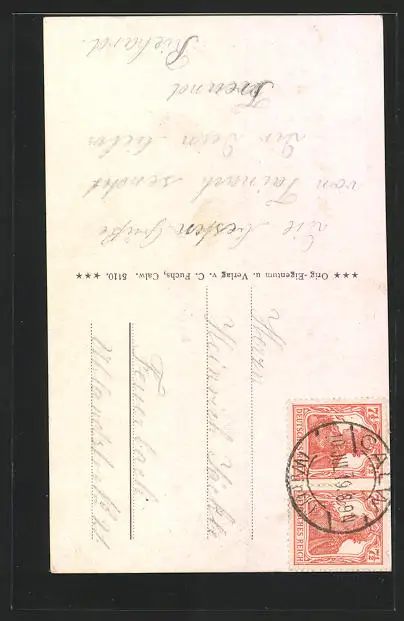 Die besten Grüße
von Teinach sendet
Dir Dein lieber
Freund
Richard.
*** Orig.-Eigentum u. Verlag v. C. Fuchs, Calw. 5110. ***
Herrn
Heinrich
Feuerbach
7½ 7½
DEUTSCHES REICH
DEUTSCHES REICH
CALW